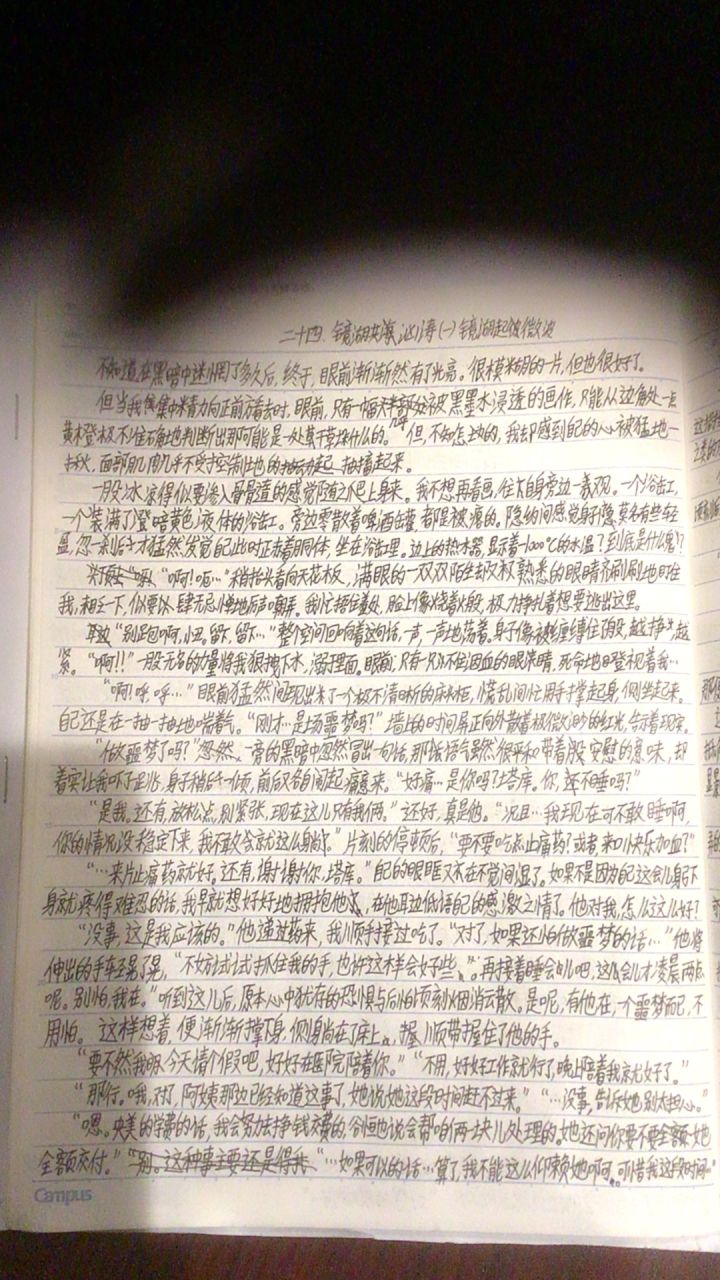 二十四.镜湖共海汹涛(一)镜湖起皱微波
不知道在黑暗中迷惘了多久后,终于,眼前渐渐然有了光亮。很模糊的一片,但也很好了。
但当我集中精力向正前方看去时,眼前,只有一幅大半部分被黑墨水浸透的画作,只能从边角处一点
黄橙极不准确地判断出那可能是一处草垛什么的。但,不知怎么的,我却感到自己的心被猛地一
揪,面部肌肉几乎不受控制地抽搐起来。
一股冰凉得似要渗入骨髓的感觉随之爬上身来。我不想再看画,往自身旁边一观。一个浴缸,
一个装满了橙暗黄色液体的浴缸。旁边零散着啤酒罐,都是被捏瘪的。隐约间感觉身子莫名有些轻
盈,忽一刹后才猛然发觉自己此时正赤着胴体,坐在浴缸里。边上的热水器,显示着-1000℃的水温?到底是什么鬼?
“啊!呃…”稍抬头看向天花板,满眼的一双双陌生却又极熟悉的眼睛齐刷刷地盯住
我,相互一下,似要以肆无忌惮地厉声嘲弄。我忙捂住羞处,脸上像烧着火般,极力挣扎着想要逃出这里。
耳边“别跑啊,小丑。留下,留下…”整个空间回响着这句话,一声一声地荡着。身子像被缠缚住而般,越挣越
紧。“啊!!”一股无名的力量将我狠拽下水,溺于里面。眼前,只有一只止不住因血的眼睛,死命地瞪视着我…
“啊!呼,呼…”眼前猛然间现出来了一个极不清晰的床头柜,慌乱间忙用手撑起身,侧坐起来。
自己还是在一抽一抽地喘着气。“刚才…是场噩梦吗?”墙上的时间屏正向外散着极微渺的红光,会示着现实。
“做噩梦了吗?”一旁的黑暗中忽然冒出一句话,那话语气虽然很平和,带着股安慰的意味,却
着实让我吓了一跳,身子稍后一倾,前后各自闹起痛意来。“好痛…是你吗?塔库。你,还不睡吗?”
“是我。还有,放松点,别紧张,现在这儿只有我俩。”还好,真是他。“况且…我现在可不敢睡啊,
你的情况没稳定下来,我不敢就这么躺你。”片刻的停顿后,“要不要吃点止痛药?或者来口快乐加血?”
“…来片止痛药就好。还有,谢谢你,塔库。”自己的眼眶又不在不觉间湿了。如果不是因为自己这会儿身下
身就疼得难忍的话,我早就想好好地拥抱他了,在他耳边低语自己的感激之情了。他对我,怎么这么好?
“没事,这是我应该的。”他递过药来,我顺手接过吃了。“对了,如果还怕做噩梦的话…”他将
伸出的手轻晃了晃,“不妨试试抓住我的手,也许这样会好些。再接着睡会儿吧,这会儿才凌晨两点
呢。别怕,我在。”听到这儿后,原本心中犹存的恐惧与后怕顷刻烟消云散。是呢,有他在,一个噩梦而已,不
用怕。这样想着,便渐渐撑下身,侧身躺在了床上,顺带握住了他的手。
“要不然我明天请个假吧,好好在医院陪着你。”“不用,好好工作就行了,晚上陪着我就好了。”
“那行。哦,对了,阿姨那边已经知道这事了,她说她这段时间赶不过来。”“…没事,告诉她别太担心。”
“嗯。央美的学费的话,我会努力去挣钱交费的,谷恒也说会帮咱俩一块儿处理的。她还问你要不要她
全额交付。”“别。这种事主要还是得我”“…如果可以的话…算了,我不能这么仰赖她啊。可惜我这段时间…”
Campus